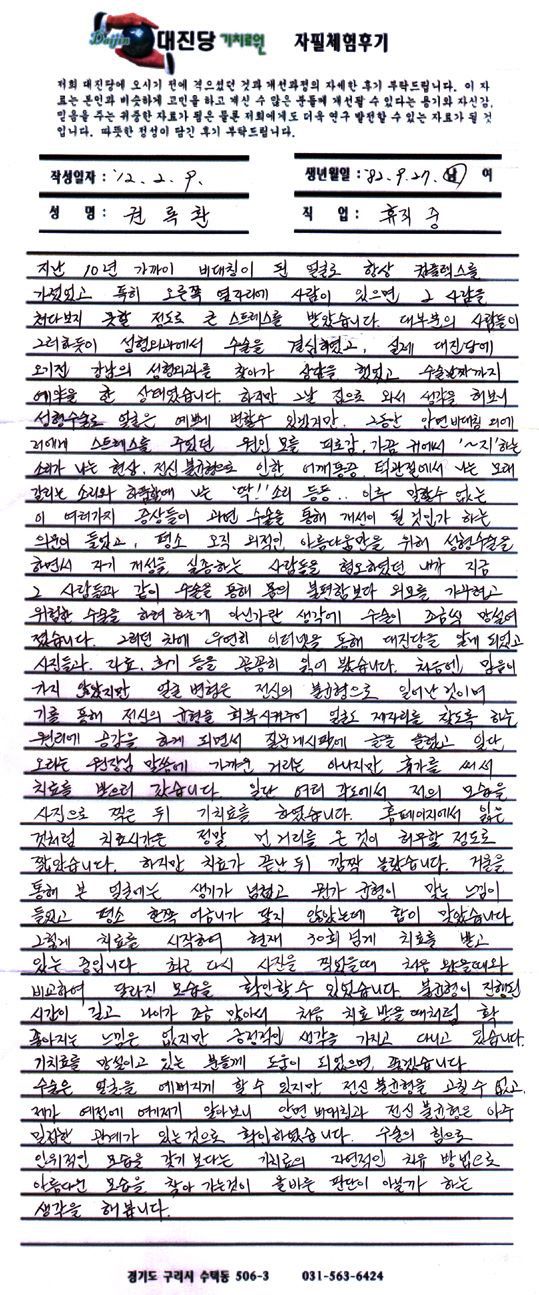 Daijin 대진당 기치료원 자필체험후기
저희 대진당에 오시기 전에 격으셨던 것과 개선과정의 자세한 후기 부탁드립니다. 이 자
료는 본인과 비슷하게 고민을 하고 계신 수 많은 분들께 개선될 수 있다는 용기와 자신감,
믿음을 주는 귀중한 자료가 됨은 물론 저희에게도 더욱 연구 발전할 수 있는 자료가 될 것
입니다. 따뜻한 정성이 담긴 후기 부탁드립니다.
작성일자 : '12. 2. 9. 생년월일 : '82. 9. 27. 남 여
성 명 : 권 록 환 직 업 : 휴직 중
지난 10년 가까이 비대칭이 된 얼굴로 항상 컴플렉스를
가졌었고 특히 오른쪽 옆자리에 사람이 있으면 그 사람을
쳐다보지 못할 정도로 큰 스트레스를 받았습니다. 대부분의 사람들이
그러하듯이 성형외과에서 수술을 결심하였고, 실제 대진당에
오기전 강남의 성형외과를 찾아가 상담을 했었고 수술날짜까지
예약을 한 상태였습니다. 하지만 그날 집으로 와서 생각을 해보니
성형수술로 얼굴은 예쁘게 변할수 있겠지만, 그동안 안면비대칭 외에
저에게 스트레스를 주었던 원인 모를 피로감, 가끔 귀에서 '~지'하는
소리가 나는 현상, 전신 불균형으로 인한 어깨통증, 턱관절에서 나는 모래
갈리는 소리와 하품할때 나는 '딱!!' 소리 등등.. 이루 말할수 없는
이 여러가지 증상들이 과연 수술을 통해 개선이 될 것인가 하는
의문이 들었고, 평소 오직 외적인 아름다움만을 위해 성형수술을
하면서 자기 개성을 실종하는 사람들을 혐오하였던 내가 지금
그 사람들과 같이 수술을 통해 몸의 불편함보다 외모를 가꾸려고
위험한 수술을 하려 하는게 아닌가란 생각에 수술이 조금씩 망설여
졌습니다. 그러던 차에 우연히 인터넷을 통해 대진당을 알게 되었고
사진들과, 자료, 후기 등을 꼼꼼히 읽어 봤습니다. 처음엔 믿음이
가지 않았지만 얼굴 변형은 전신의 불균형으로 일어난 것이며
기를 통해 전신의 균형을 회복시켜주어 얼굴도 제자리를 찾도록 하는
원리에 공감을 하게 되면서 질문게시판에 글을 올렸고 일단
오라는 원장님 말씀에 가까운 거리는 아니지만 휴가를 써서
치료를 받으러 갔습니다. 일단 여러 각도에서 저의 모습을
사진으로 찍은 뒤 기치료를 하였습니다. 홈페이지에서 읽은
것처럼 치료시간은 정말 먼 거리를 온 것이 허무할 정도로
짧았습니다. 하지만 치료가 끝난 뒤 깜짝 놀랐습니다. 거울을
통해 본 얼굴에는 생기가 넘쳤고 뭔가 균형이 맞는 느낌이
들었고 평소 한쪽 어금니가 닿지 않았는데 합이 맞았습니다.
그렇게 치료를 시작하여 현재 30회 넘게 치료를 받고
있는 중입니다. 최근 다시 사진을 찍었을때 처음 왔을때와
비교하여 달라진 모습을 확인할 수 있었습니다. 불균형이 진행된
시간이 길고 나이가 조금 많아서 처음 치료 받을 때처럼 확
좋아지는 느낌은 없지만 긍정적인 생각을 가지고 다니고 있습니다.
기치료를 망설이고 있는 분들께 도움이 되었으면, 좋겠습니다.
수술은 얼굴을 예뻐지게 할 수 있지만 전신 불균형을 고칠 수 없고,
제가 예전에 여기저기 알아보니 안면 비대칭과 전신 불균형은 아주
밀접한 관계가 있는 것으로 확인하였습니다. 수술의 힘으로
인위적인 모습을 갖기 보다는 기치료의 자연적인 치유 방법으로
아름다운 모습을 찾아 가는것이 올바른 판단이 아닐까 하는
생각을 해 봅니다.
경기도 구리시 수택동 506-3 031-563-6424